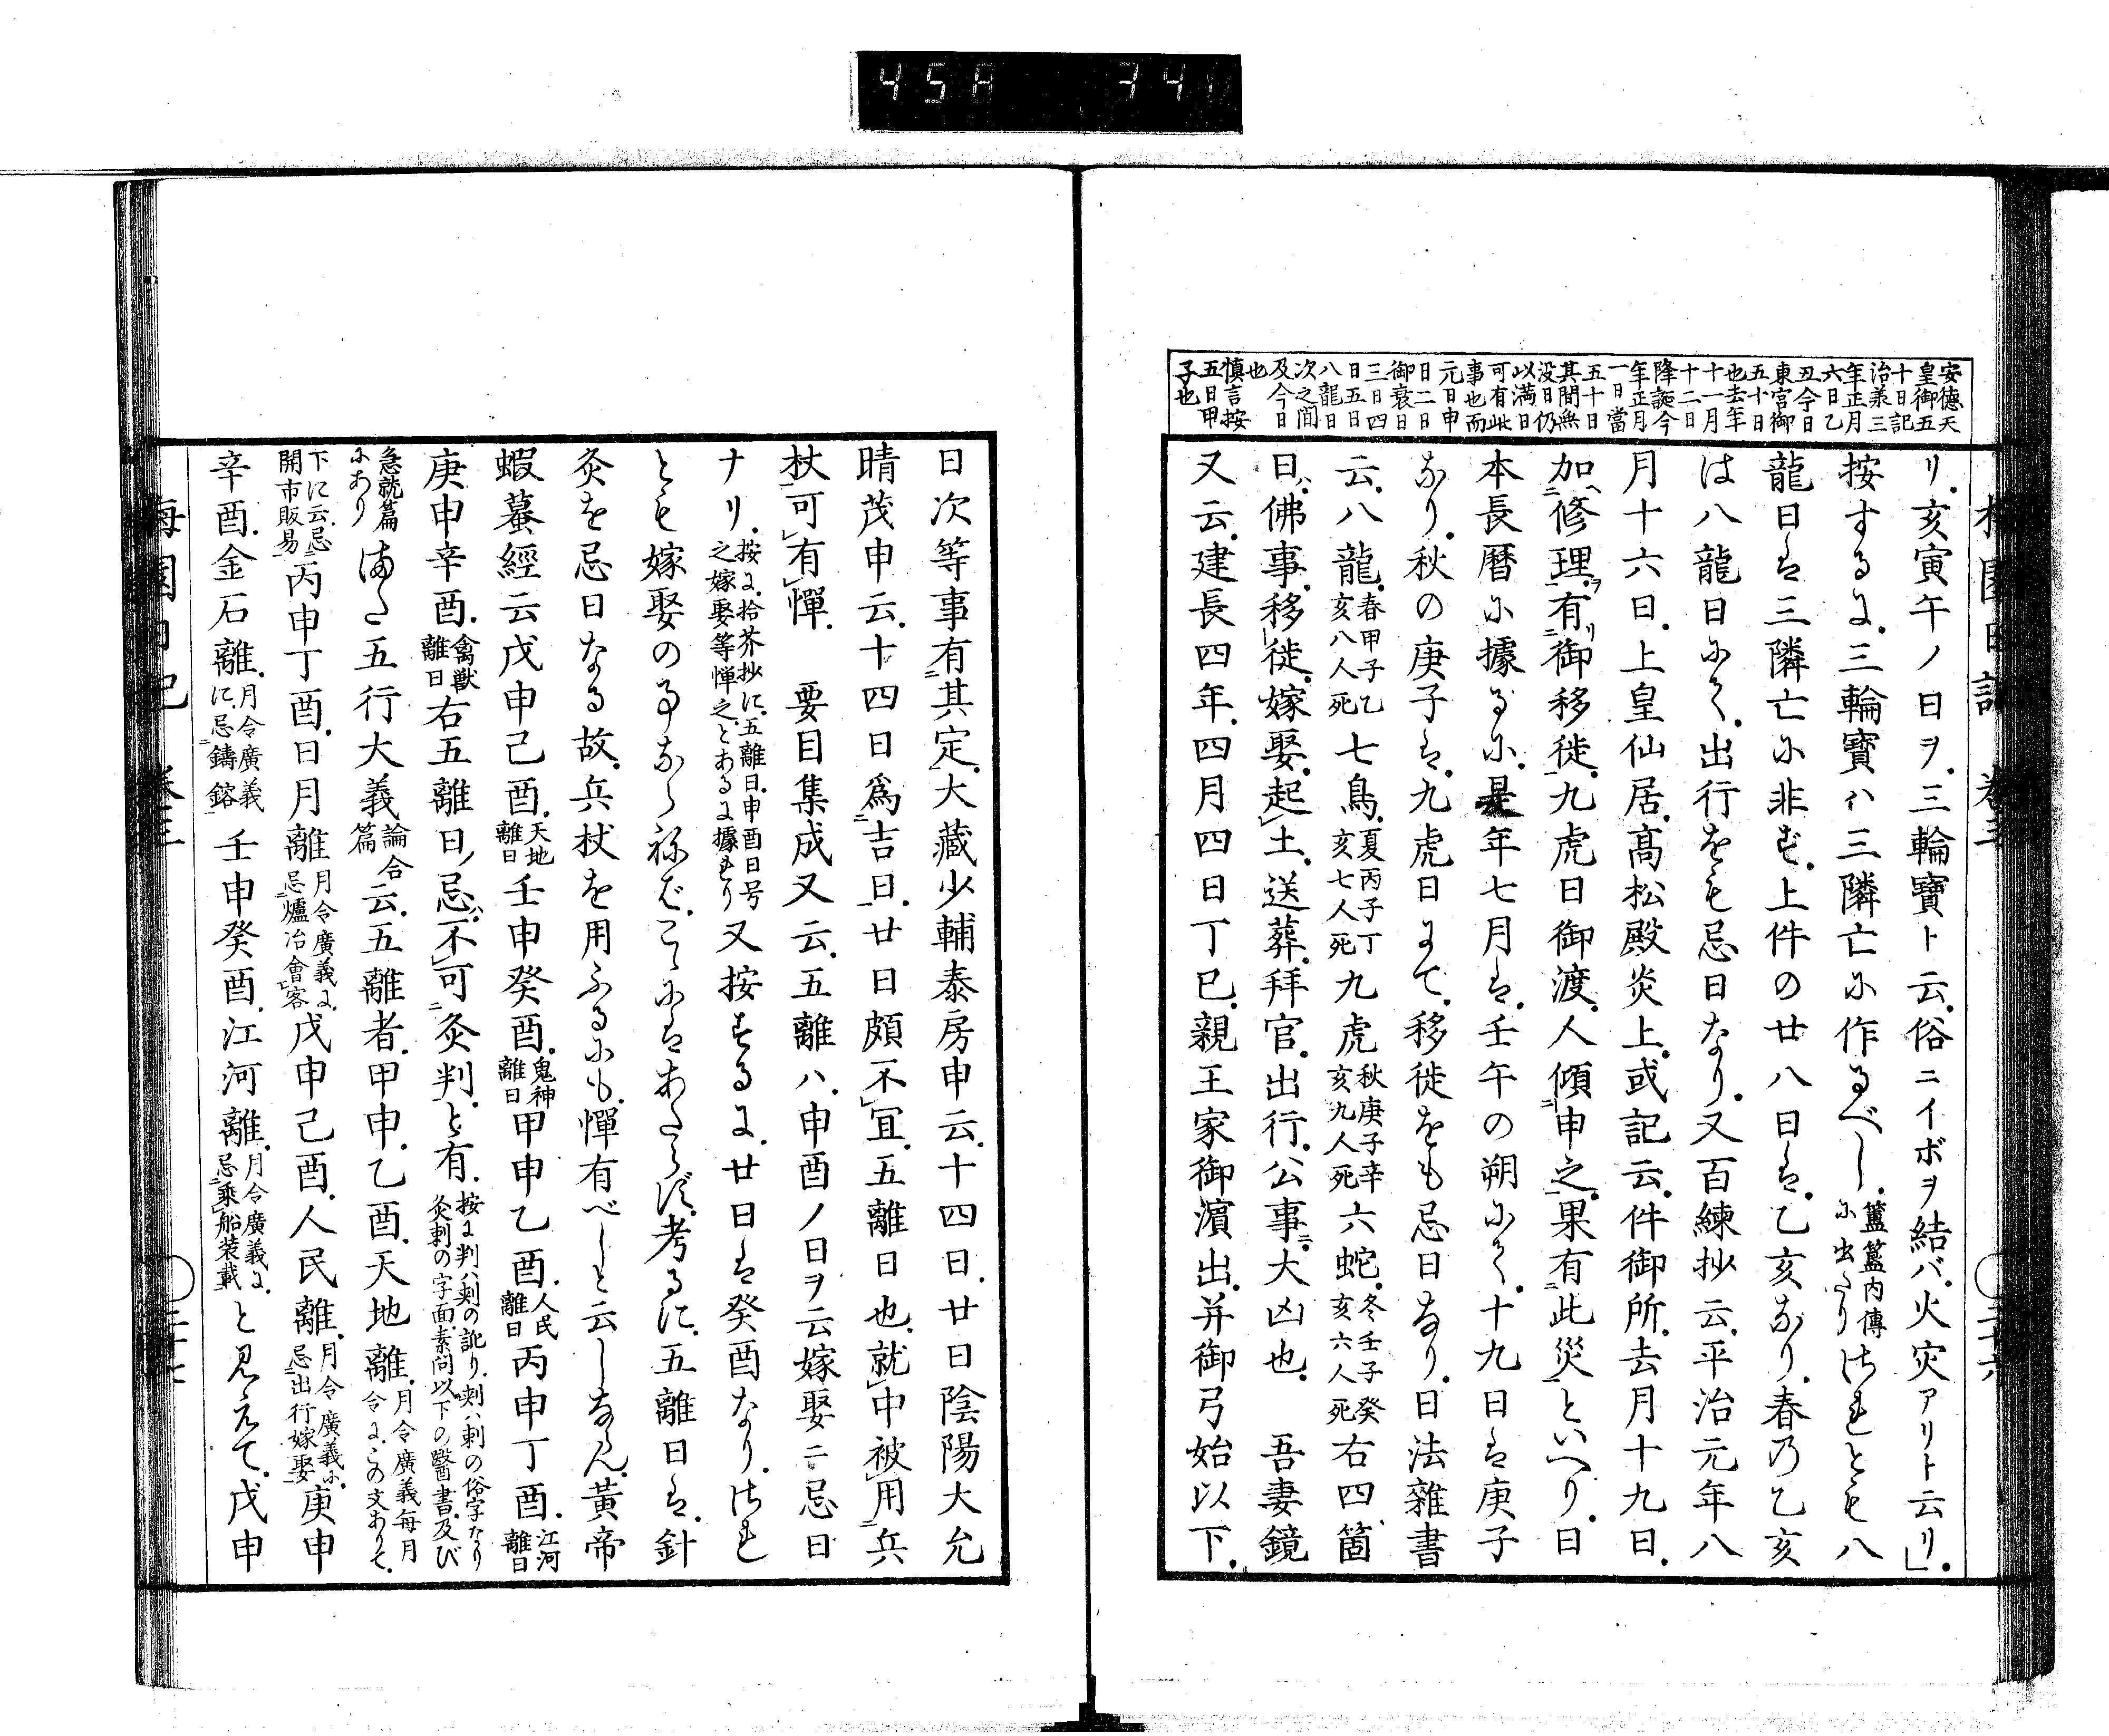 458 341
安德天
皇御五
十日記
治承三
年正月
六日乙
丑今日
東宮御
五十日
也去年
十一月
十二日
降誕今
年正月
一日當
五十日
其間無
没日仍
以滿日
可有此
事也而
元日申
日二日
御衰日
三日四
日五日
八龍日
次之間
及今日
也
愼言按
五日甲
子也
リ亥寅午ノ日ヲ三輪寶ト云俗ニイボヲ結バ火灾アリト云リ
按するに三輪寶ハ三隣亡に作るべし簠簋内傳に出たりされとも八
龍日は三隣亡に非ず上件の廿八日は乙亥なり春乃乙亥
は八龍日にて出行をも忌日なり又百練抄云平治元年八
月十六日上皇仙居高松殿炎上或記云件御所去月十九日
加修理有御移徙九虎日御渡人傾申之果有此災といへり日
本長暦に據るに是年七月は壬午の朔にて十九日は庚子
なり秋の庚子は九虎日にて移徙をも忌日なり日法雜書
云八龍春甲子乙亥八人死七鳥夏丙子丁亥七人死九虎秋庚子辛亥九人死六蛇冬壬子癸亥六人死右四箇
日佛事移徙嫁娶起土送葬拜官出行公事大凶也　吾妻鏡
又云建長四年四月四日丁巳親王家御濱出并御弓始以下
日次等事有其定大藏少輔泰房申云十四日廿日陰陽大允
晴茂申云十四日爲吉日廿日頗不宜五離日也就中被用兵
杖可有憚　要目集成又云五離ハ申酉ノ日ヲ云嫁娶ニ忌日
ナリ按に拾芥抄に五離日申酉日号之嫁娶等憚之とあるに據れり又按ずるに廿日は癸酉なりされ
とも嫁娶の事ならねばこゝにはあたらず考るに五離日は針
灸を忌日なる故兵杖を用ふるにも憚有べしと云しならん黄帝
蝦蟇經云戊申己酉天地離日壬申癸酉鬼神離日甲申乙酉人民離日丙申丁酉江河離日
庚申辛酉禽獸離日右五離日忌不可灸判と有按に判ハ刾の訛り刾ハ刺の俗字なり灸刺の字面素問以下の醫書及び
急就篇にありまた五行大義論合篇云五離者甲申乙酉天地離月令廣義每月令にこの文ありて
下に云忌開市販易丙申丁酉日月離月令廣義に忌爐冶會客戊申己酉人民離月令廣義に忌出行嫁娶庚申
辛酉金石離月令廣義に忌鑄鎔壬申癸酉江河離月令廣義に忌乘船装載と見えて戊申
梅園日記　卷三